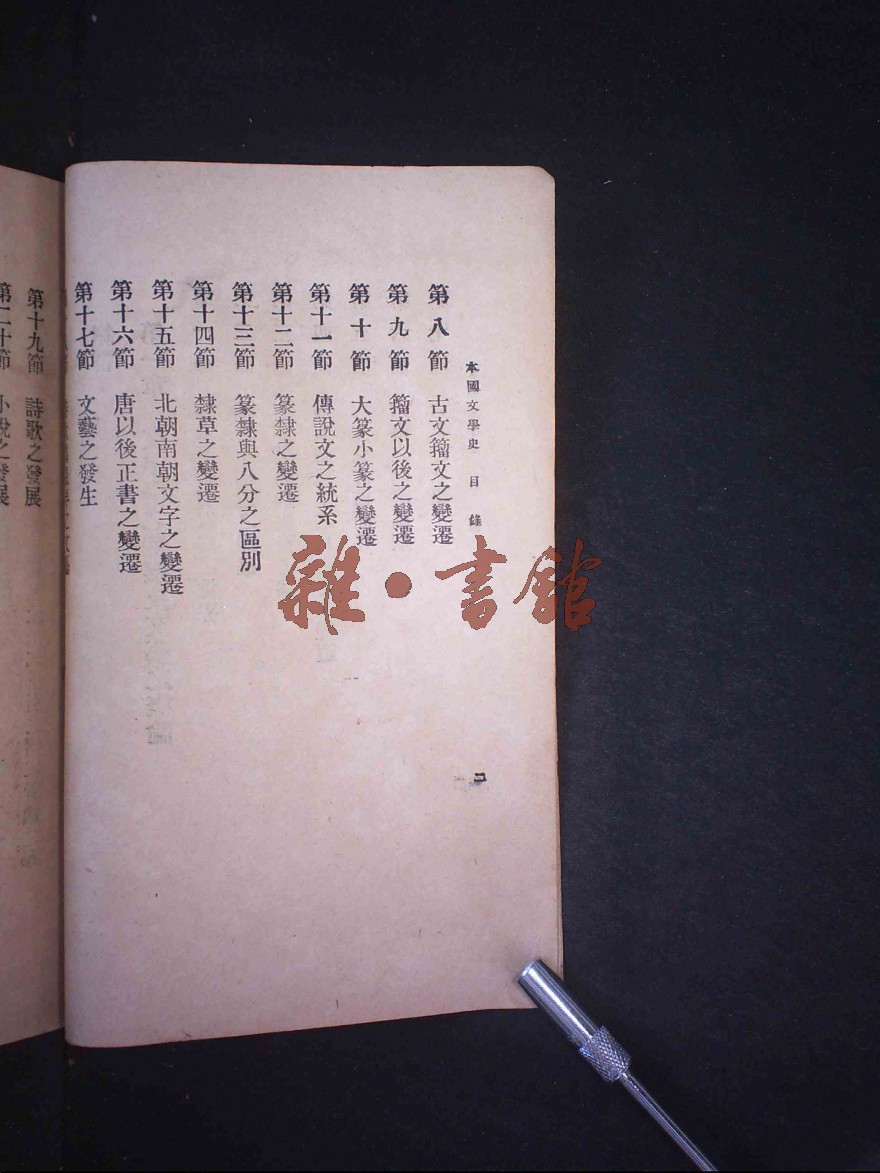 本國文學史 目錄
二
第八節 古文籀文之變遷
第九節 籀文以後之變遷
第十節 大篆小篆之變遷
第十一節 傳說文之統系
第十二節 篆隸之變遷
第十三節 篆隸與八分之區別
第十四節 隸草之變遷
第十五節 北朝南朝文字之變遷
第十六節 唐以後正書之變遷
第十七節 文藝之發生
第十九節 詩歌之發展
第二十節 小說之發展
雜·書館